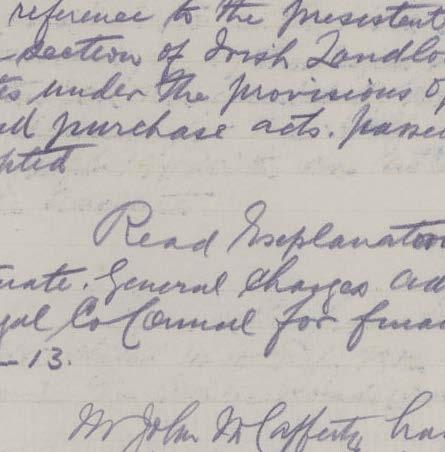 reference to the presistent
section of Irish Landlo
tes under the provisions o
d purchase acts. passe
pted
Read Explanation
mate. General Charges ad
gal Co Council for finan
- 13.
Mr John McCafferty ha